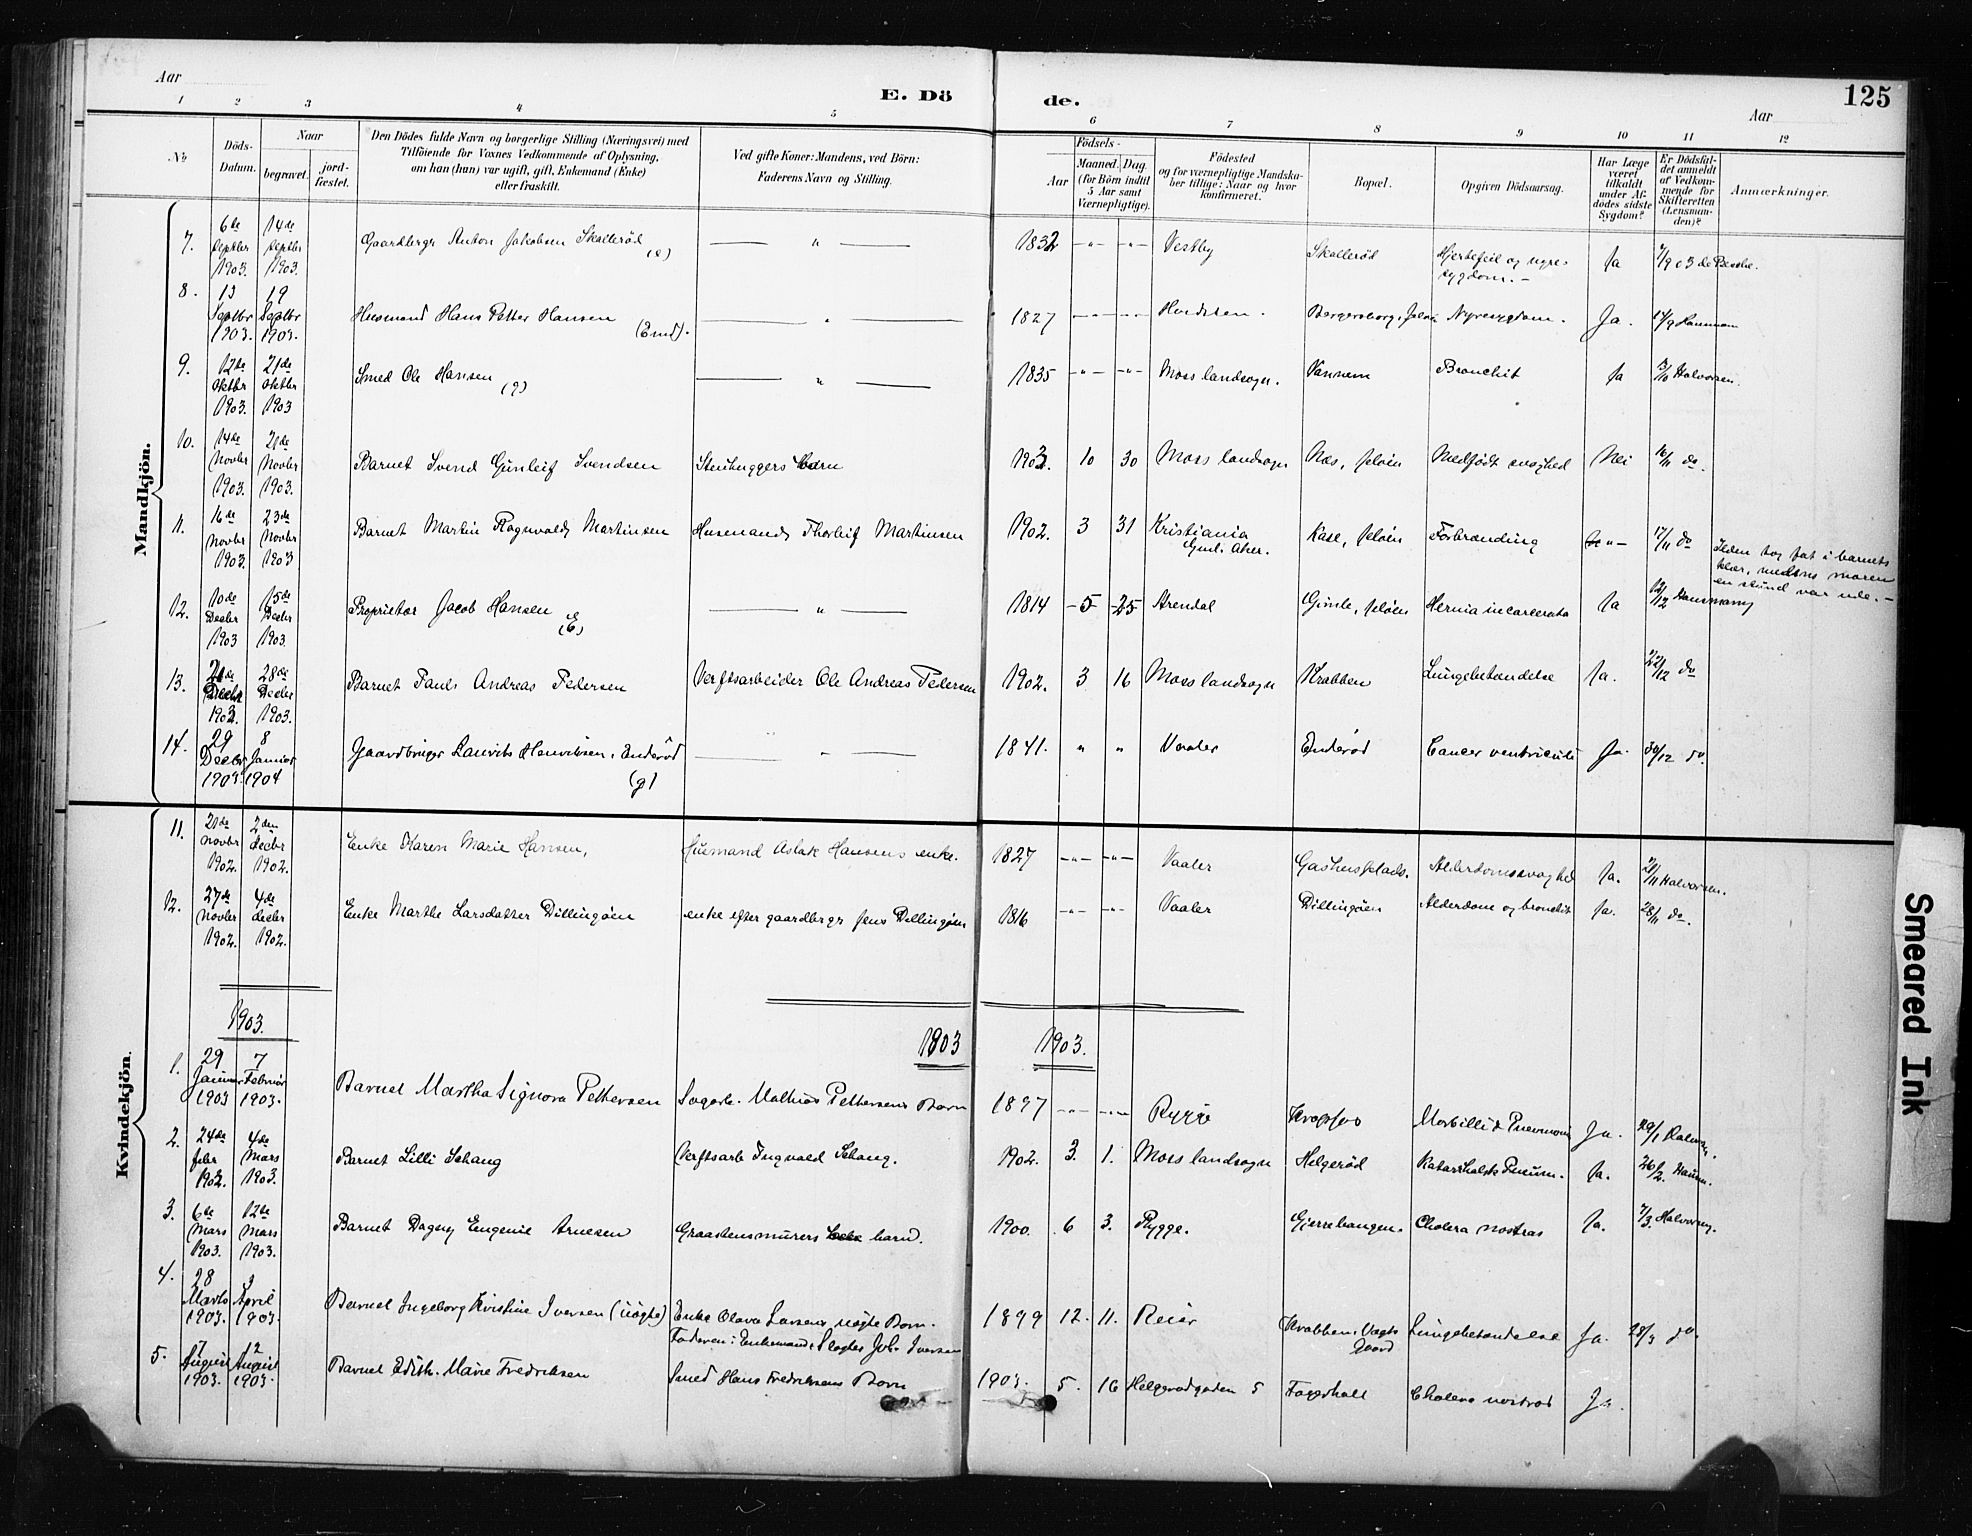 Aar
E. Dö
de.
Aar
125
1 2 3 4 5 6 7 8 9 10 11 12
No
Döds-
Datum.
Naar
begravet.
jord-
fæstet.
Den Dödes fulde Navn og borgerlige Stilling (Næringsvei) med
Tilföiende for Voxnes Vedkommende af Oplysning,
om han (hun) var ugift, gift, Enkemand (Enke)
eller fraskilt.
Ved gifte Koner: Mandens, ved Börn:
Faderens Navn og Stilling.
Födsels-
Aar
Maaned. Dag.
(for Börn indtil
5 Aar samt
Værnepligtige).
Födested
og for værnepligtige Mandska-
ber tillige: Naar og hvor
konfirmeret.
Bopæl.
Opgiven Dödsaarsag.
Har Læge
været
tilkaldt
under Af-
dödes sidste
Sygdom?
Er Dödsfal-
det anmeldt
af Vedkom-
mende for
Skifteretten
(Lensman-
den)?
Anmærkninger.
Mandkjön.
7. 6te Septbr 1903. 14de Septbr 1903. Gaardbrgr Anton Jakobsen Skallerød (e) — " — 1832 -"- -"- Vestby Skallerød Hjertefeil og nyre-
sygdom.- Ja 7/9 03 de
8. 13 Septbr 1903. 19 Septbr 1903. Husmand Hans Petter Hansen (Emd). — " — 1827 -"- -"- Hvidsten. Nyresygdom. Ja.
9. 12te Oktbr 1903. 21de Oktbr 1903 Smed Ole Hansen (g) — " — 1835 -"- -"- Moss landsogn. Vannem Bronchit Ja Halvorsen.
10. 14de Novbr 1903. 21de Novbr 1903. Barnet Svend Gunleif Svendsen Stenhuggers barn 1903. 10 30 Moss landsogn Næs, Jeløen Medfødt svaghed Nei 16/11 do.
11. 16de Novbr 1903. 23de Novbr 1903 Barnet Martin Ragnvald Martinsen Husmand Thorleif Martinsen 1902. 3 31 Kristiania
Gml. Aker. Kase, Jeløen Forbrænding -"- 17/11 do Ilden tog fat i barnets
klær, medens moren
en stund var ude.-
12. 10de Decbr 1903 15de Decbr 1903. Proprietær Jacob Hansen (E) — " — 1814 -5- -25- Arendal Gimle, Jeløen Hernia incarcerata Ja 12/12
13. 21de Decbr 1903. 28de Decbr 1903. Barnet Pauls Andreas Pedersen Verftsarbeider Ole Andreas Pedersen 1902. 3 16 Moss landsogn Krabben Lungebetændelse Ja. 22/12 do
14. 29 Decbr 1903. 8 Januar 1904 Gaardbruger Laurits Henriksen, Enderød (g) — " — 1841. " " Vaaler Enderød Cancer ventriculi Ja. 30/12 do.
Kvindekjön.
11. 21de Novbr 1902. 2den Decbr 1902. Enke Karen Marie Hansen, Husmand Aslak Hansens enke. 1827 -"- -"- Vaaler Gashusplads. Alderdomssvaghed Ja. 21/11 Halvorsen.
12. 27de Novbr 1902. 4de Decbr 1902. Enke Marthe Larsdatter Dillingøen enke efter gaardbrgr Jens Dillingøen 1816 -"- -"- Vaaler Dillingøen Alderdom og bronchit Ja. 28/11 do.
1903. 1903 1903.
1. 29 Januar 1903 7 Februar 1903. Barnet Martha Signora Pettersen Sagarb. Mathias Pettersens Barn 1897 -"- -"- Rygge Morbilli & Pneumoni Ja. 29/1
2. 24de febr 1902. 4de Mars 1903. Barnet Lilli Schang Verftsarb Ingvald Schang. 1902. 3. 1. Moss landsogn Helgerød Katarrhalsk Pneum. Ja. 26/2
3. 6te Mars 1903. 12te Mars 1903. Barnet Dagny Eugenie Arnesen Graastensmurers barn. 1900. 6 3. Rygge. Gjerrebangen. Cholera nostras Ja. 7/3
4. 28 Marts 1903. 3 April 1903. Barnet Ingeborg Kristine Iversen (uægte) Enke Olava Larsens uægte Barn.
Faderen: Enkemand Slagter Joh. Iversen 1899 12. 11. Reier Krabben, Vogts
Gaard Lungebetændelse Ja. 28/3 do.
5. 7 August 1903. 12 August 1903. Barnet Edith Marie Fredriksen Smed Hans Fredriksens Barn 1903. 5. 16 Helgerødgaden 5 Fagerhalt Cholera nostras Ja.
Smeared Ink